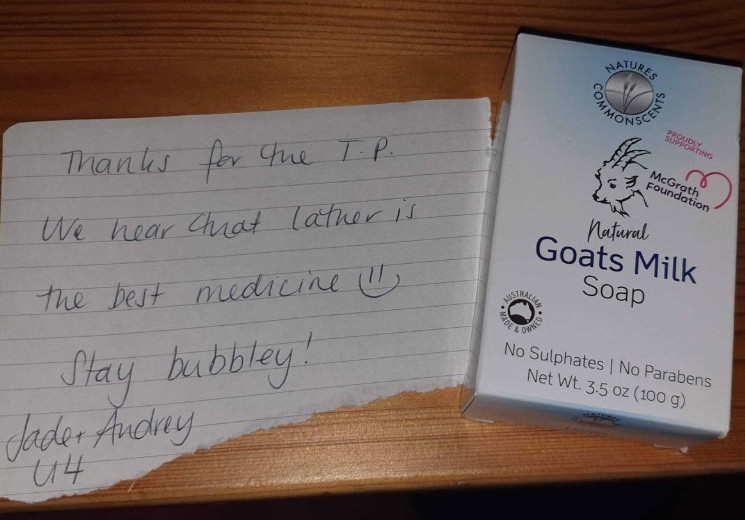 Thanks for the T.P.
We hear that lather is
the best medicine
Stay bubbley!
Jade + Audrey
U4
NATURES
COMMONSCENTS
PROUDLY
SUPPORTING
McGrath
Foundation
Natural
Goats Milk
Soap
AUSTRALIAN
MADE & OWNED
No Sulphates | No Parabens
Net Wt. 3.5 oz (100 g)